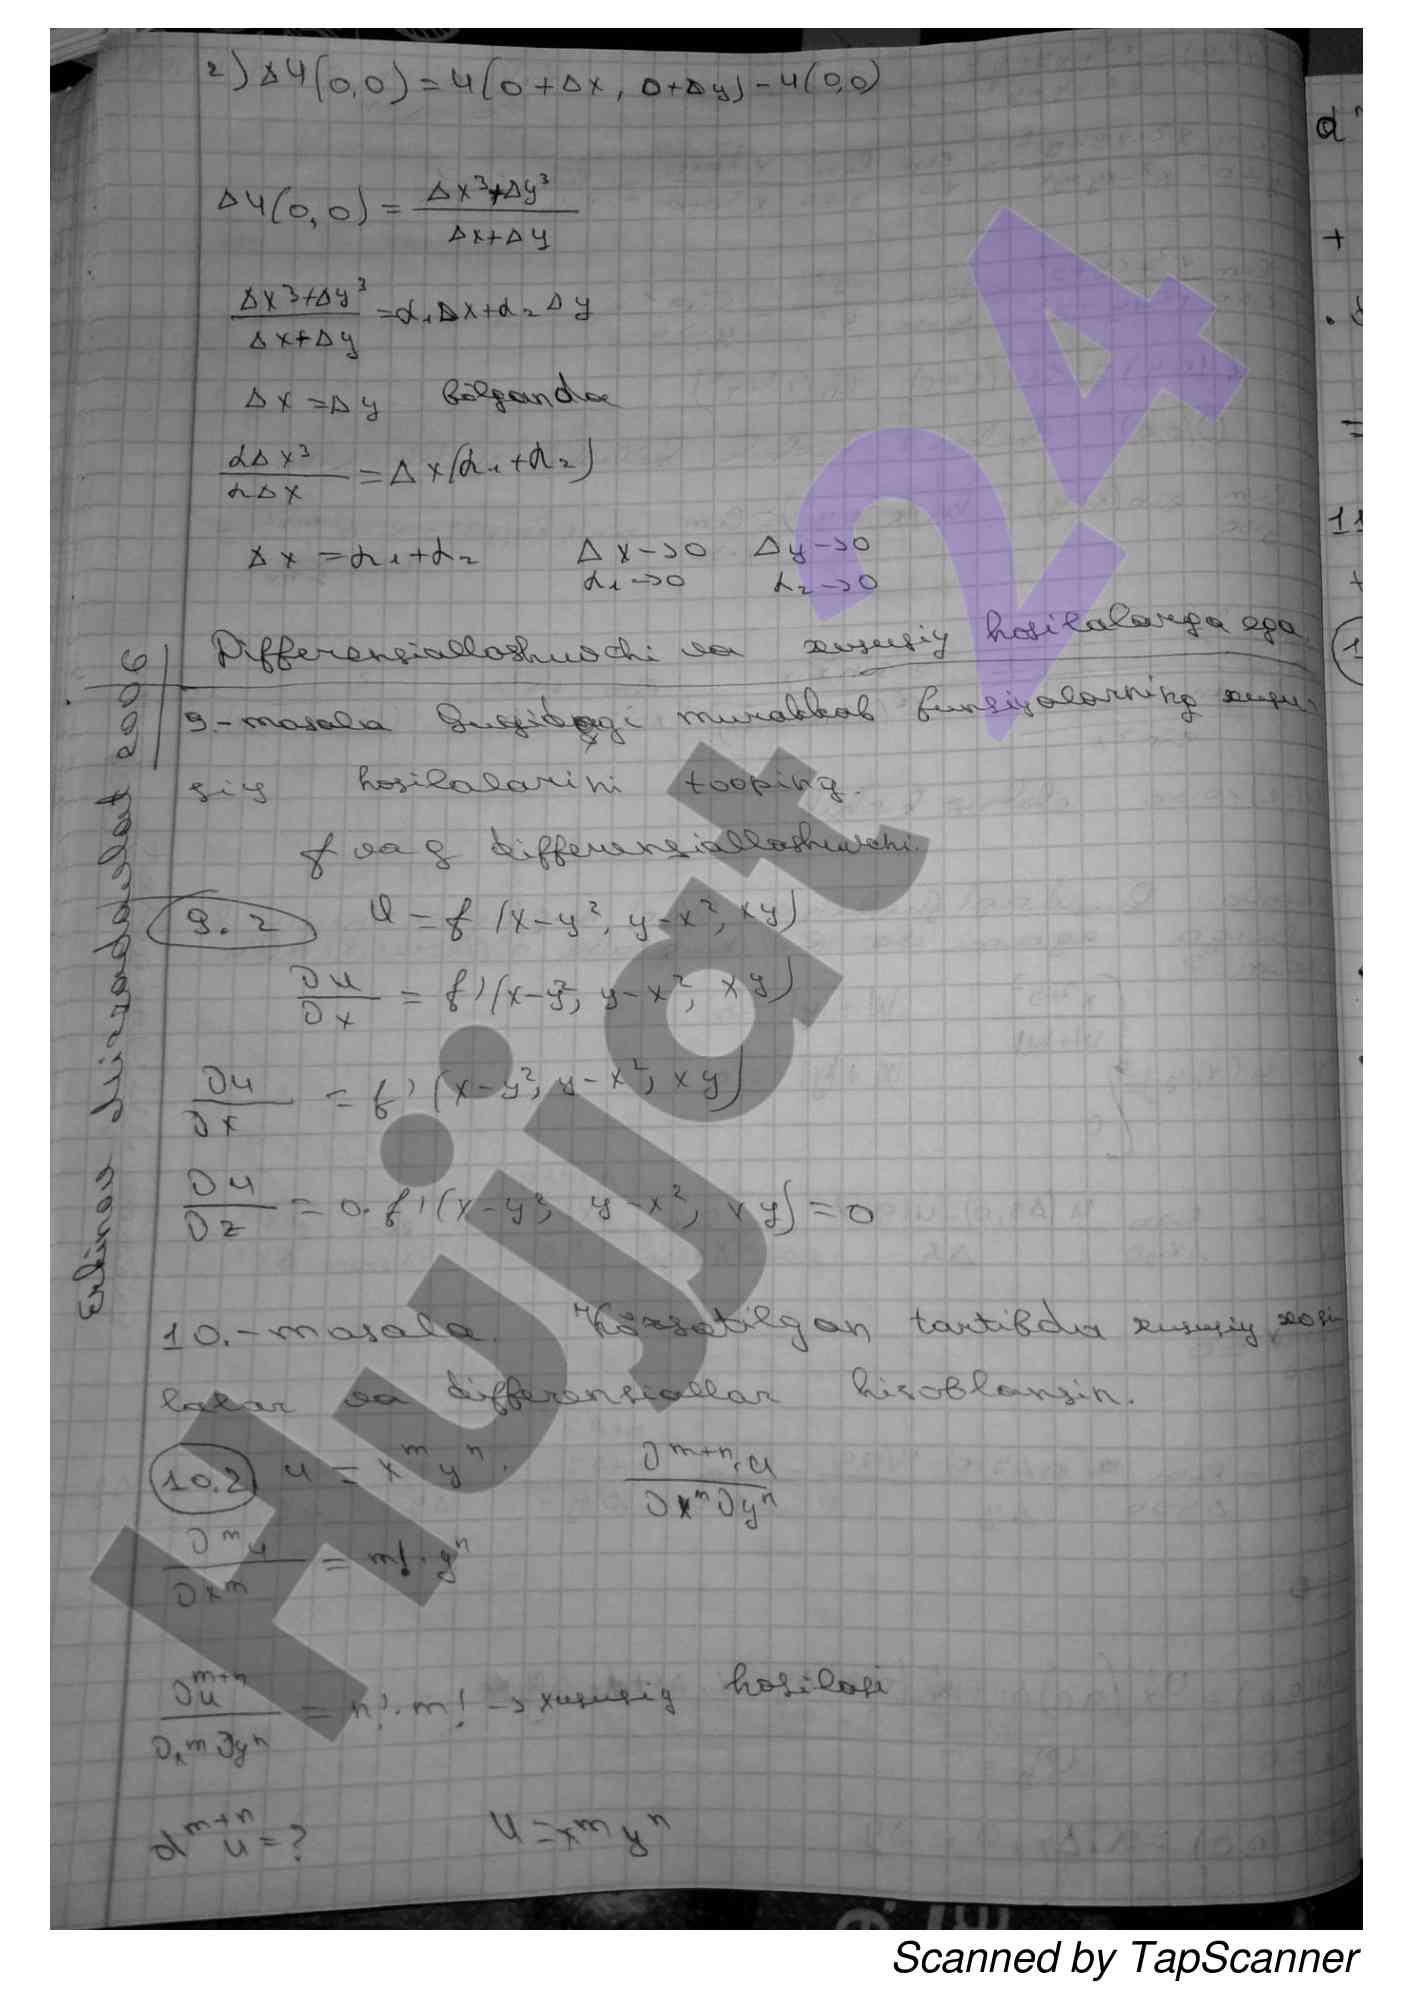 2) Δu(0,0) = u(0+Δx, 0+Δy) - u(0,0)
Δu(0,0) = (Δx³+Δy³)/(Δx+Δy)
(Δx³+Δy³)/(Δx+Δy) = α₁Δx+α₂Δy
Δx = Δy bo'lganda
2Δx³/2Δx = Δx(α₁+α₂)
Δx = α₁+α₂ Δx→0 Δy→0
α₁→0 α₂→0
Differensiallashuvchi va xususiy hosilalarga ega
9.-masala Quyidagi murakkab funsiyalarning xusu-
siy hosilalarini tooping.
f va g differensiallashuvchi.
9.2 U = f(x-y², y-x², xy)
∂u/∂x = f'(x-y², y-x², xy)
∂u/∂x = f'(x-y², y-x², xy)
∂u/∂z = 0·f'(x-y², y-x², xy) = 0
10.-masala. Ko'rsatilgan tartibda xususiy xosi
lalar va differensiallar hisoblansin.
10.2 u = x^m y^n. ∂^(m+n)u/∂x^m∂y^n
∂^m u/∂x^m = m!·y^n
∂^(m+n)u/∂x^m∂y^n = n!·m! → xususiy hosilasi
d^(m+n)u = ? U = x^m y^n
Erkinov Mirzadavlat 2006
d
+
=
11
+
1
Hujjat 24
Scanned by TapScanner